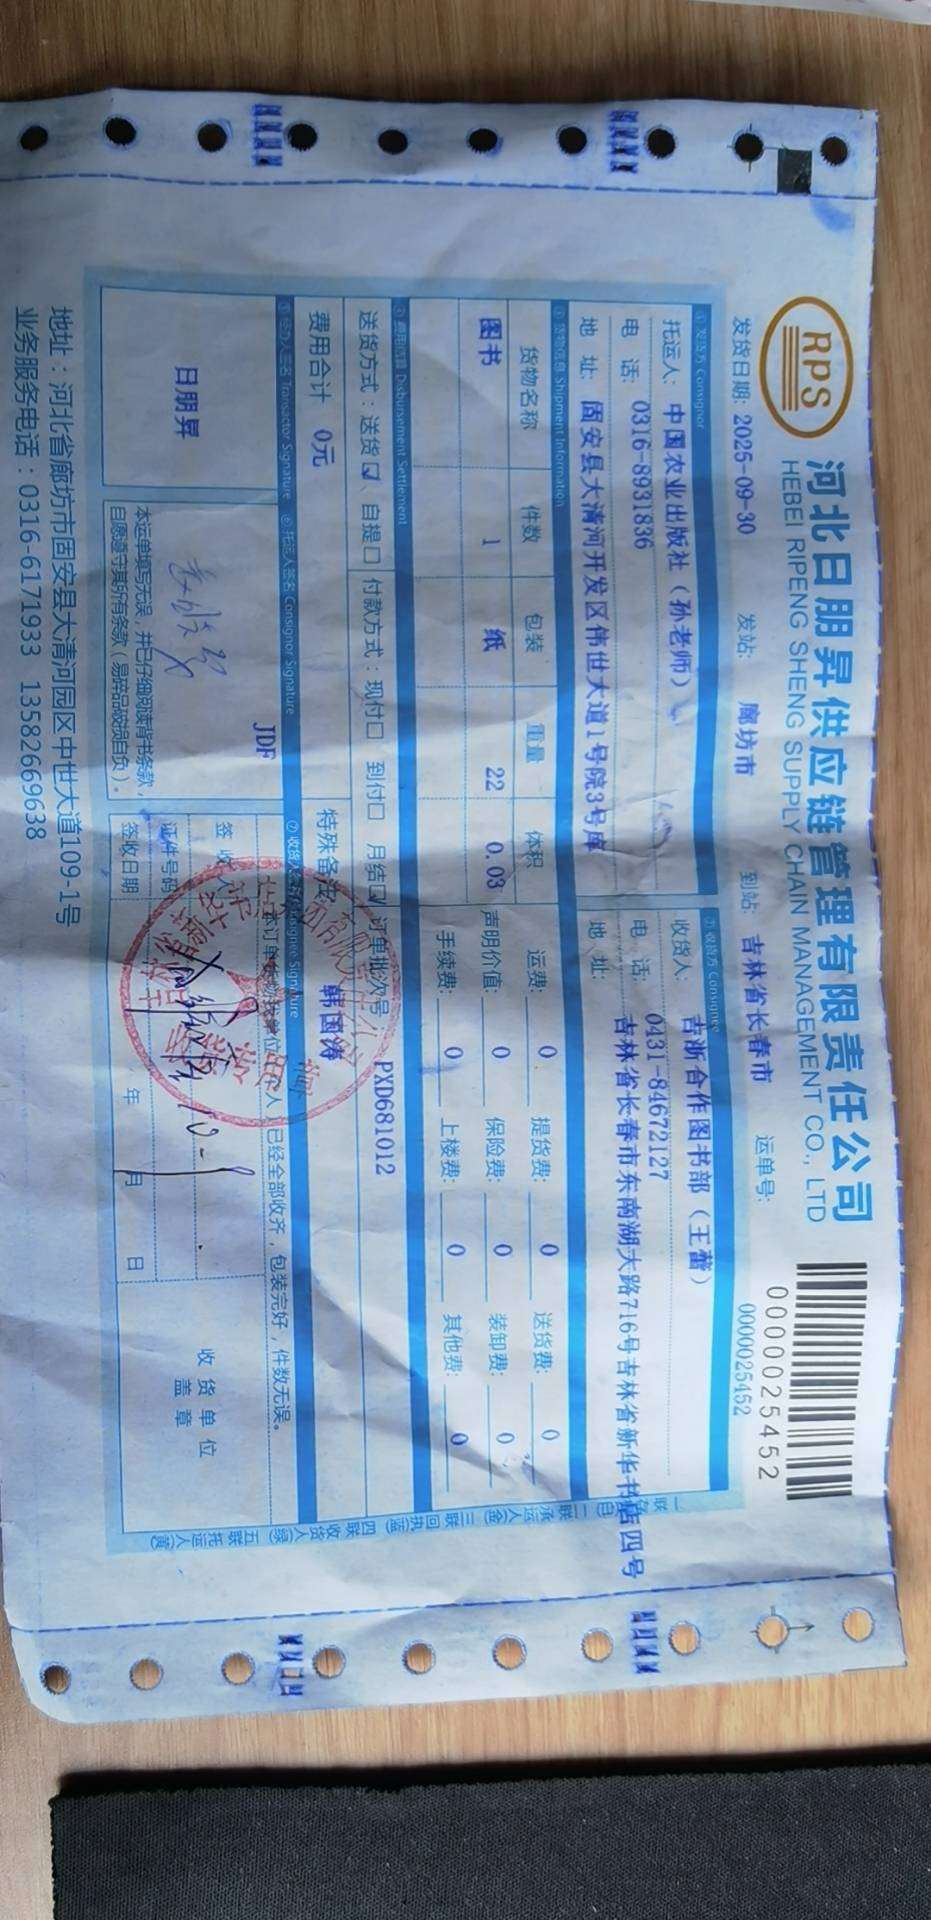 RPS
河北日朋昇供应链管理有限责任公司
HEBEI RIPENG SHENG SUPPLY CHAIN MANAGEMENT CO., LTD
0000025452
发货日期: 2025-09-30 发站: 廊坊市 到站: 吉林省长春市 运单号: 0000025452
①发货方 Consignor
托运人: 中国农业出版社（孙老师）
电 话: 0316-8931836
地 址: 固安县大清河开发区伟世大道1号院3号库
②收货方 Consignee
收货人: 吉浙合作图书部（王蕾）
电 话: 0431-84672127
地 址: 吉林省长春市东南湖大路716号吉林省新华书店四号
③货物信息 Shipment Information
货物名称 件数 包装 重量 体积
图书 1 纸 22 0.03
运费: 0 提货费: 0 送货费: 0
声明价值: 0 保险费: 0 装卸费: 0
手续费: 0 上楼费: 0 其他费: 0
④费用结算 Disbursement Settlement
送货方式: 送货☑ 自提□ 付款方式: 现付□ 到付□ 月结☑ 订单批次号 PXD681012
费用合计 0元 特殊备注 韩国涛
⑤经办人签名 Transactor Signature
日朋昇
⑥托运人签名 Consignor Signature
JDF
本运单填写无误，并已仔细阅读背书条款，
自愿遵守其所有条款（易碎品破损自负）。
⑦收货人签名 Consignee Signature
本订单货物我单位（本人）已经全部收齐，包装完好，件数无误。
签收人
证件号码
签收日期 年 月 日
10-1
收货单位
盖章
地址：河北省廊坊市固安县大清河园区中世大道109-1号
业务服务电话：0316-6171933 13582669638